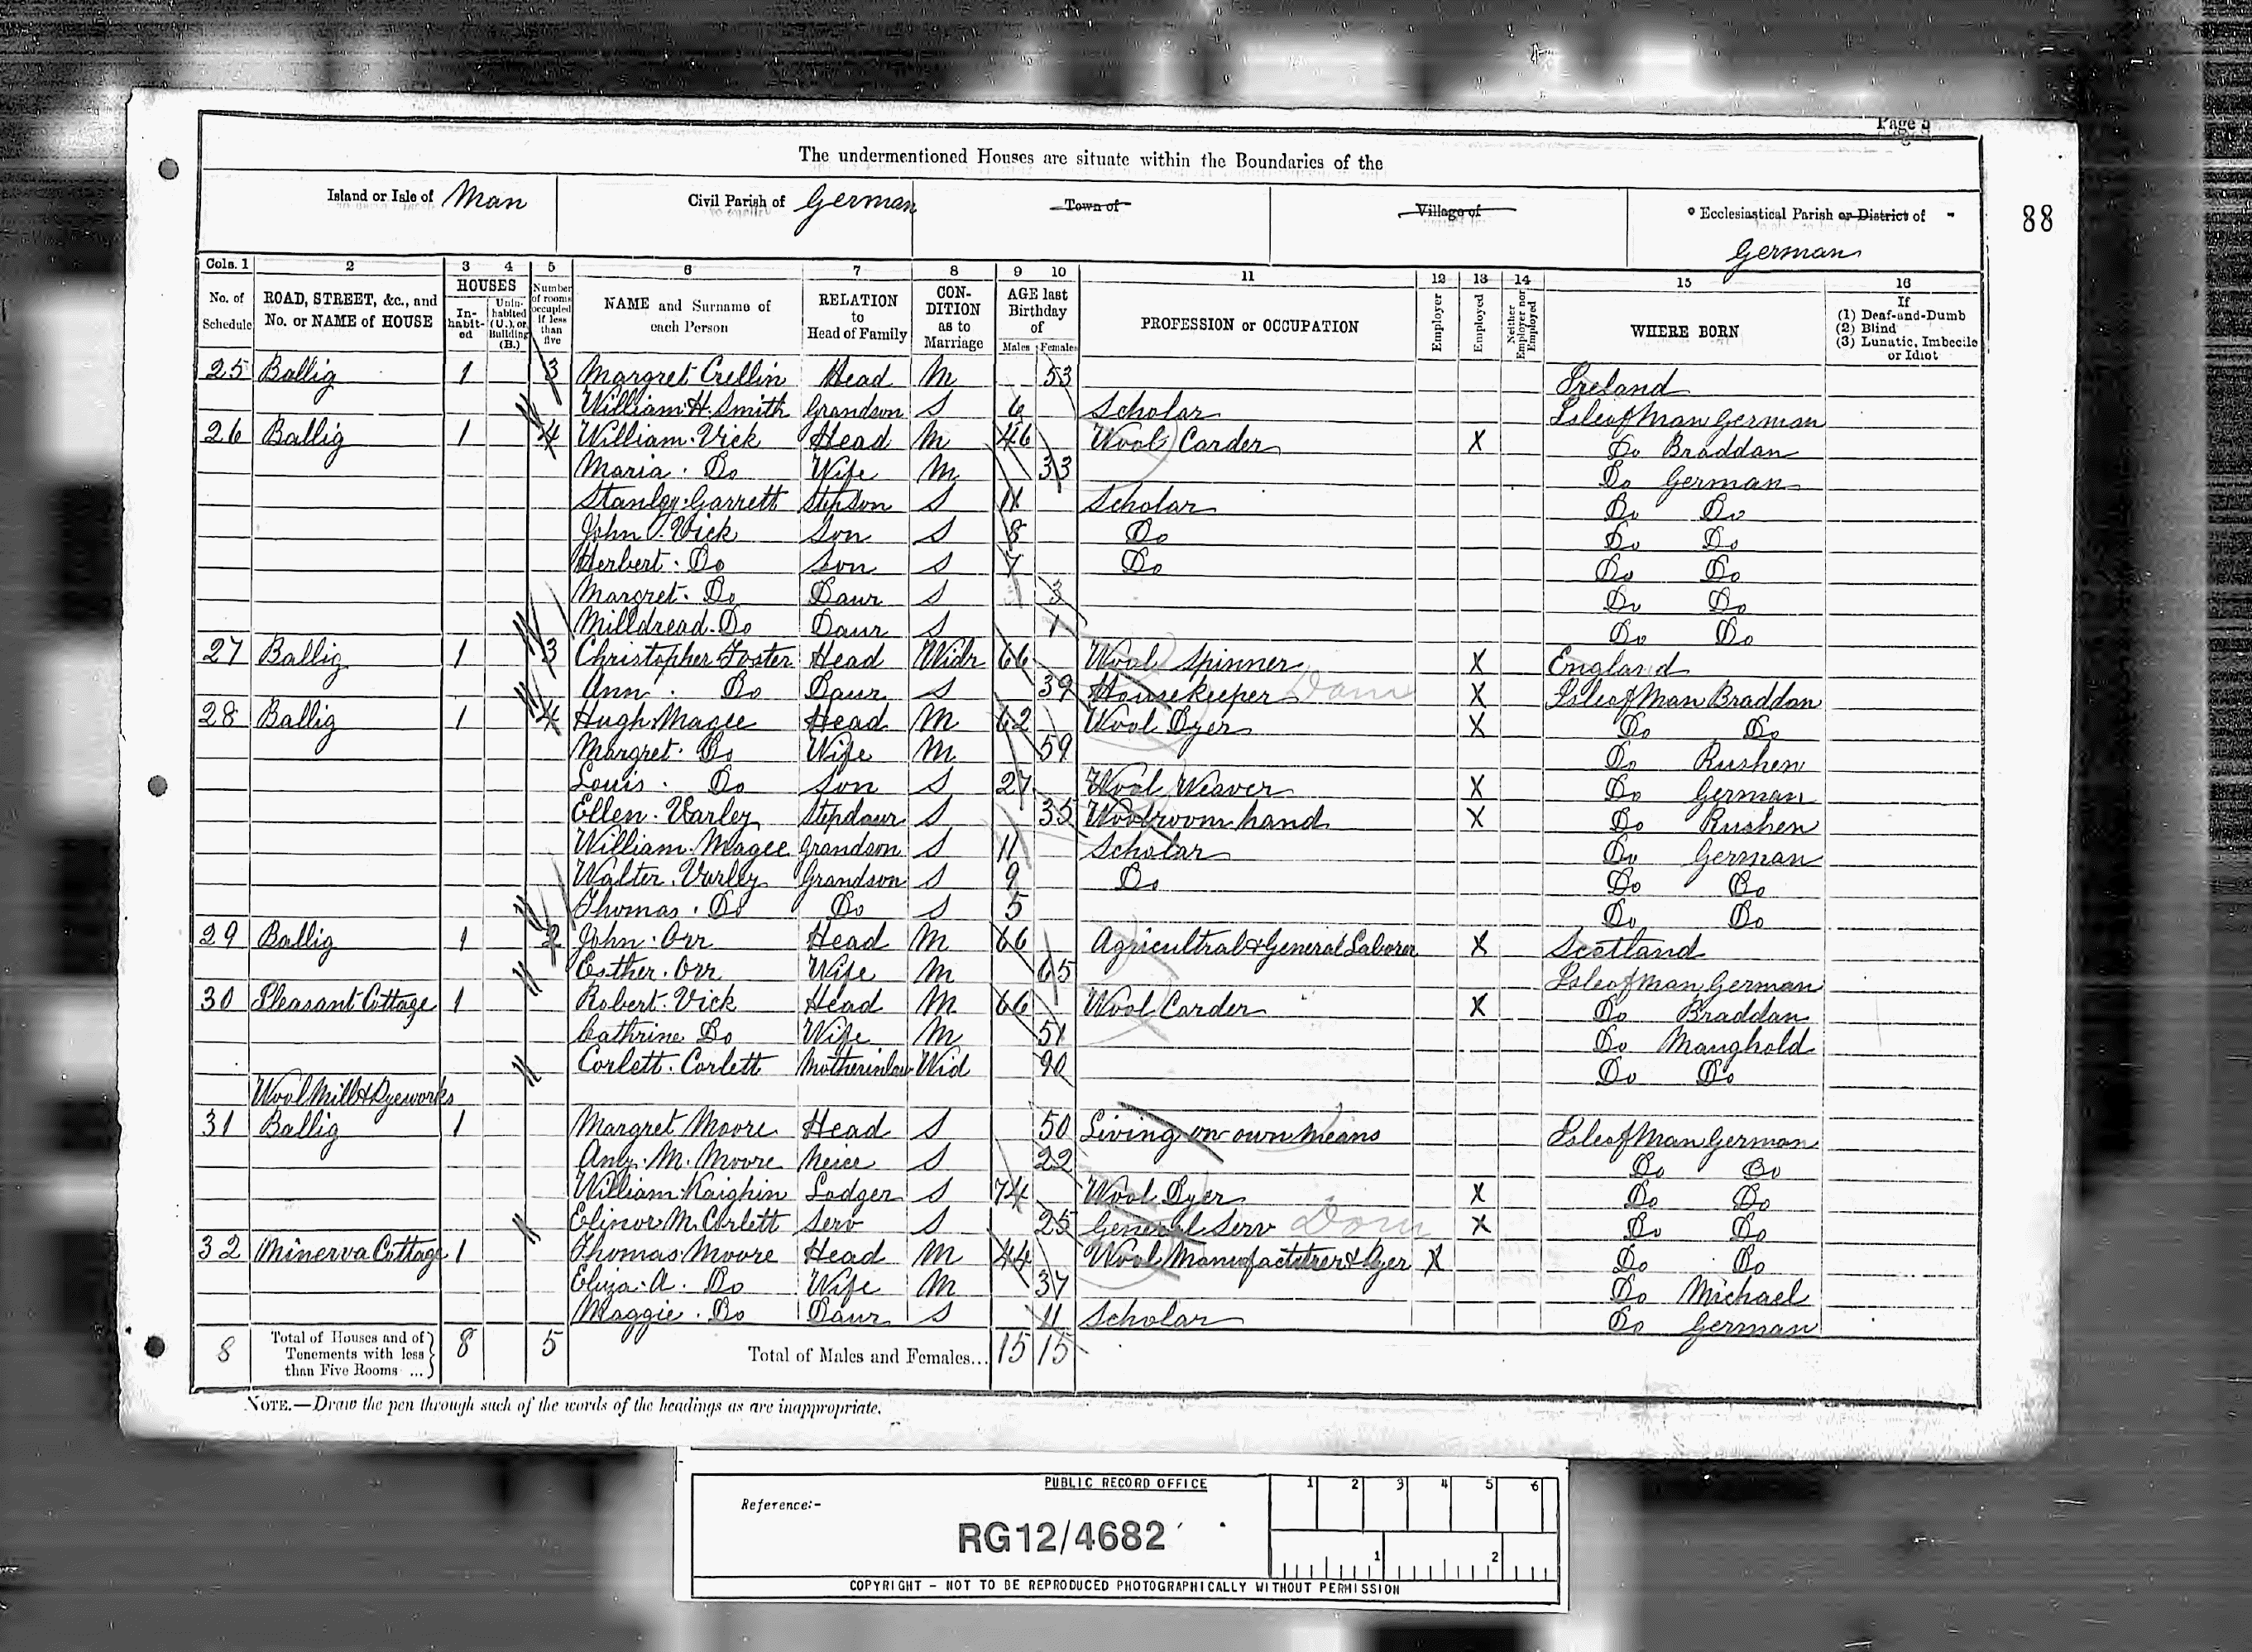 Page 5
The undermentioned Houses are situate within the Boundaries of the
Island or Isle of Man
Civil Parish of German
Town of
Village of
Ecclesiastical Parish or District of
German
88
Cols. 1 2 3 4 5 6 7 8 9 10 11 12 13 14 15 16
No. of Schedule
ROAD, STREET, &c., and No. or NAME of HOUSE
HOUSES
In-habit-ed
Unin-habited (U.), or Building (B.)
Number of rooms occupied if less than five
NAME and Surname of each Person
RELATION to Head of Family
CON-DITION as to Marriage
AGE last Birthday of
Males Females
PROFESSION or OCCUPATION
Employer
Employed
Neither Employer nor Employed
WHERE BORN
If
(1) Deaf-and-Dumb
(2) Blind
(3) Lunatic, Imbecile or Idiot
25 Ballig 1 3 Margret Crellin Head M 53 Ireland
William H. Smith Grandson S 6 Scholar Isle of Man German
26 Ballig 1 4 William Vick Head M 46 Wool Carder X Do Braddan
Maria Do Wife M 33 Do German
Stanley Garrett Stepson S 11 Scholar Do Do
John Vick Son S 8 Do Do Do
Herbert Do Son S 7 Do Do Do
Margret Do Daur S 3 Do Do
Milldread Do Daur S 1 Do Do
27 Ballig 1 3 Christopher Foster Head Widr 66 Wool Spinner X England
Ann Do Daur S 39 Housekeeper Dom X Isle of Man Braddan
28 Ballig 1 4 Hugh Magee Head M 62 Wool Dyer X Do Do
Margret Do Wife M 59 Do Rushen
Louis Do Son S 27 Wool Weaver X Do German
Ellen Varley Stepdaur S 35 Woolroom hand X Do Rushen
William Magee Grandson S 11 Scholar Do German
Walter Varley Grandson S 9 Do Do Do
Thomas Do Do S 5 Do Do
29 Ballig 1 2 John Orr Head M 66 Agricultral & General Laborer X Scotland
Esther Orr Wife M 65 Isle of Man German
30 Pleasant Cottage 1 Robert Vick Head M 66 Wool Carder X Do Braddan
Cathrine Do Wife M 51 Do Maughold
Corlett Corlett Motherinlaw Wid 90 Do Do
Wool Mill & Dyeworks
31 Ballig 1 Margret Moore Head S 50 Living on own means Isle of Man German
Amy M. Moore Neice S 22 Do Do
William Kaighin Lodger S 74 Wool Dyer X Do Do
Elinor M. Corlett Serv S 25 General Serv Dom X Do Do
32 Minerva Cottage 1 Thomas Moore Head M 44 Wool Manufactutrer & Dyer X Do Do
Eliza A. Do Wife M 37 Do Michael
Maggie Do Daur S 11 Scholar Do German
8 Total of Houses and of Tenements with less than Five Rooms ... 8 5 Total of Males and Females... 15 15
NOTE.—Draw the pen through such of the words of the headings as are inappropriate.
PUBLIC RECORD OFFICE
1 2 3 4 5 6
Reference:-
RG12/4682
1 2
COPYRIGHT - NOT TO BE REPRODUCED PHOTOGRAPHICALLY WITHOUT PERMISSION